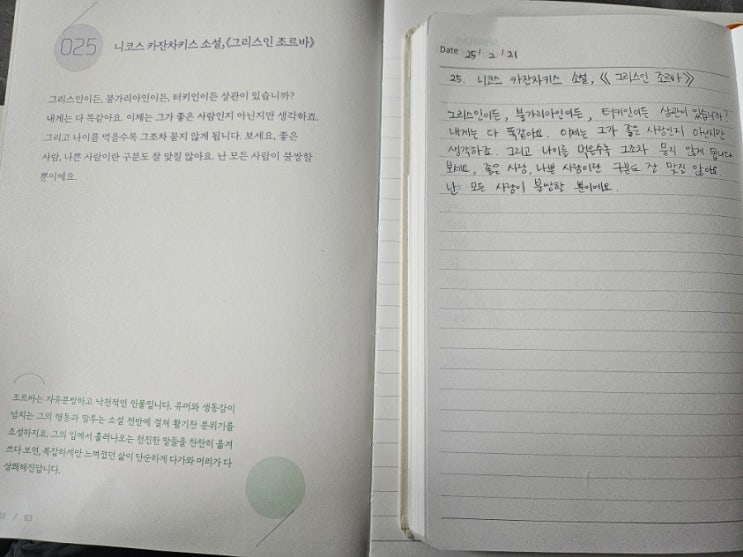 025
니코스 카잔차키스 소설, 《그리스인 조르바》
그리스인이든, 불가리아인이든, 터키인이든 상관이 있습니까?
내게는 다 똑같아요. 이제는 그가 좋은 사람인지 아닌지만 생각하죠.
그리고 나이를 먹을수록 그조차 묻지 않게 됩니다. 보세요, 좋은
사람, 나쁜 사람이란 구분도 잘 맞질 않아요. 난 모든 사람이 불쌍할
뿐이에요.
조르바는 자유분방하고 낙천적인 인물입니다. 유머와 생동감이
넘치는 그의 행동과 말투는 소설 전반에 걸쳐 활기찬 분위기를
조성하지요. 그의 입에서 흘러나오는 천진한 말들을 찬찬히 옮겨
쓰다 보면, 복잡하게만 느껴졌던 삶이 단순하게 다가와 머리가 다
상쾌해진답니다.
/ 83
Date 25/ 2/ 21
25. 니코스 카잔차키스 소설, 《그리스인 조르바》
그리스인이든, 불가리아인이든, 터키인이든 상관이 있습니까?
내게는 다 똑같아요. 이제는 그가 좋은 사람인지 아닌지만
생각하죠. 그리고 나이를 먹을수록 그조차 묻지 않게 됩니다
보세요, 좋은 사람, 나쁜 사람이란 구분도 잘 맞질 않아요.
난 모든 사람이 불쌍할 뿐이에요.